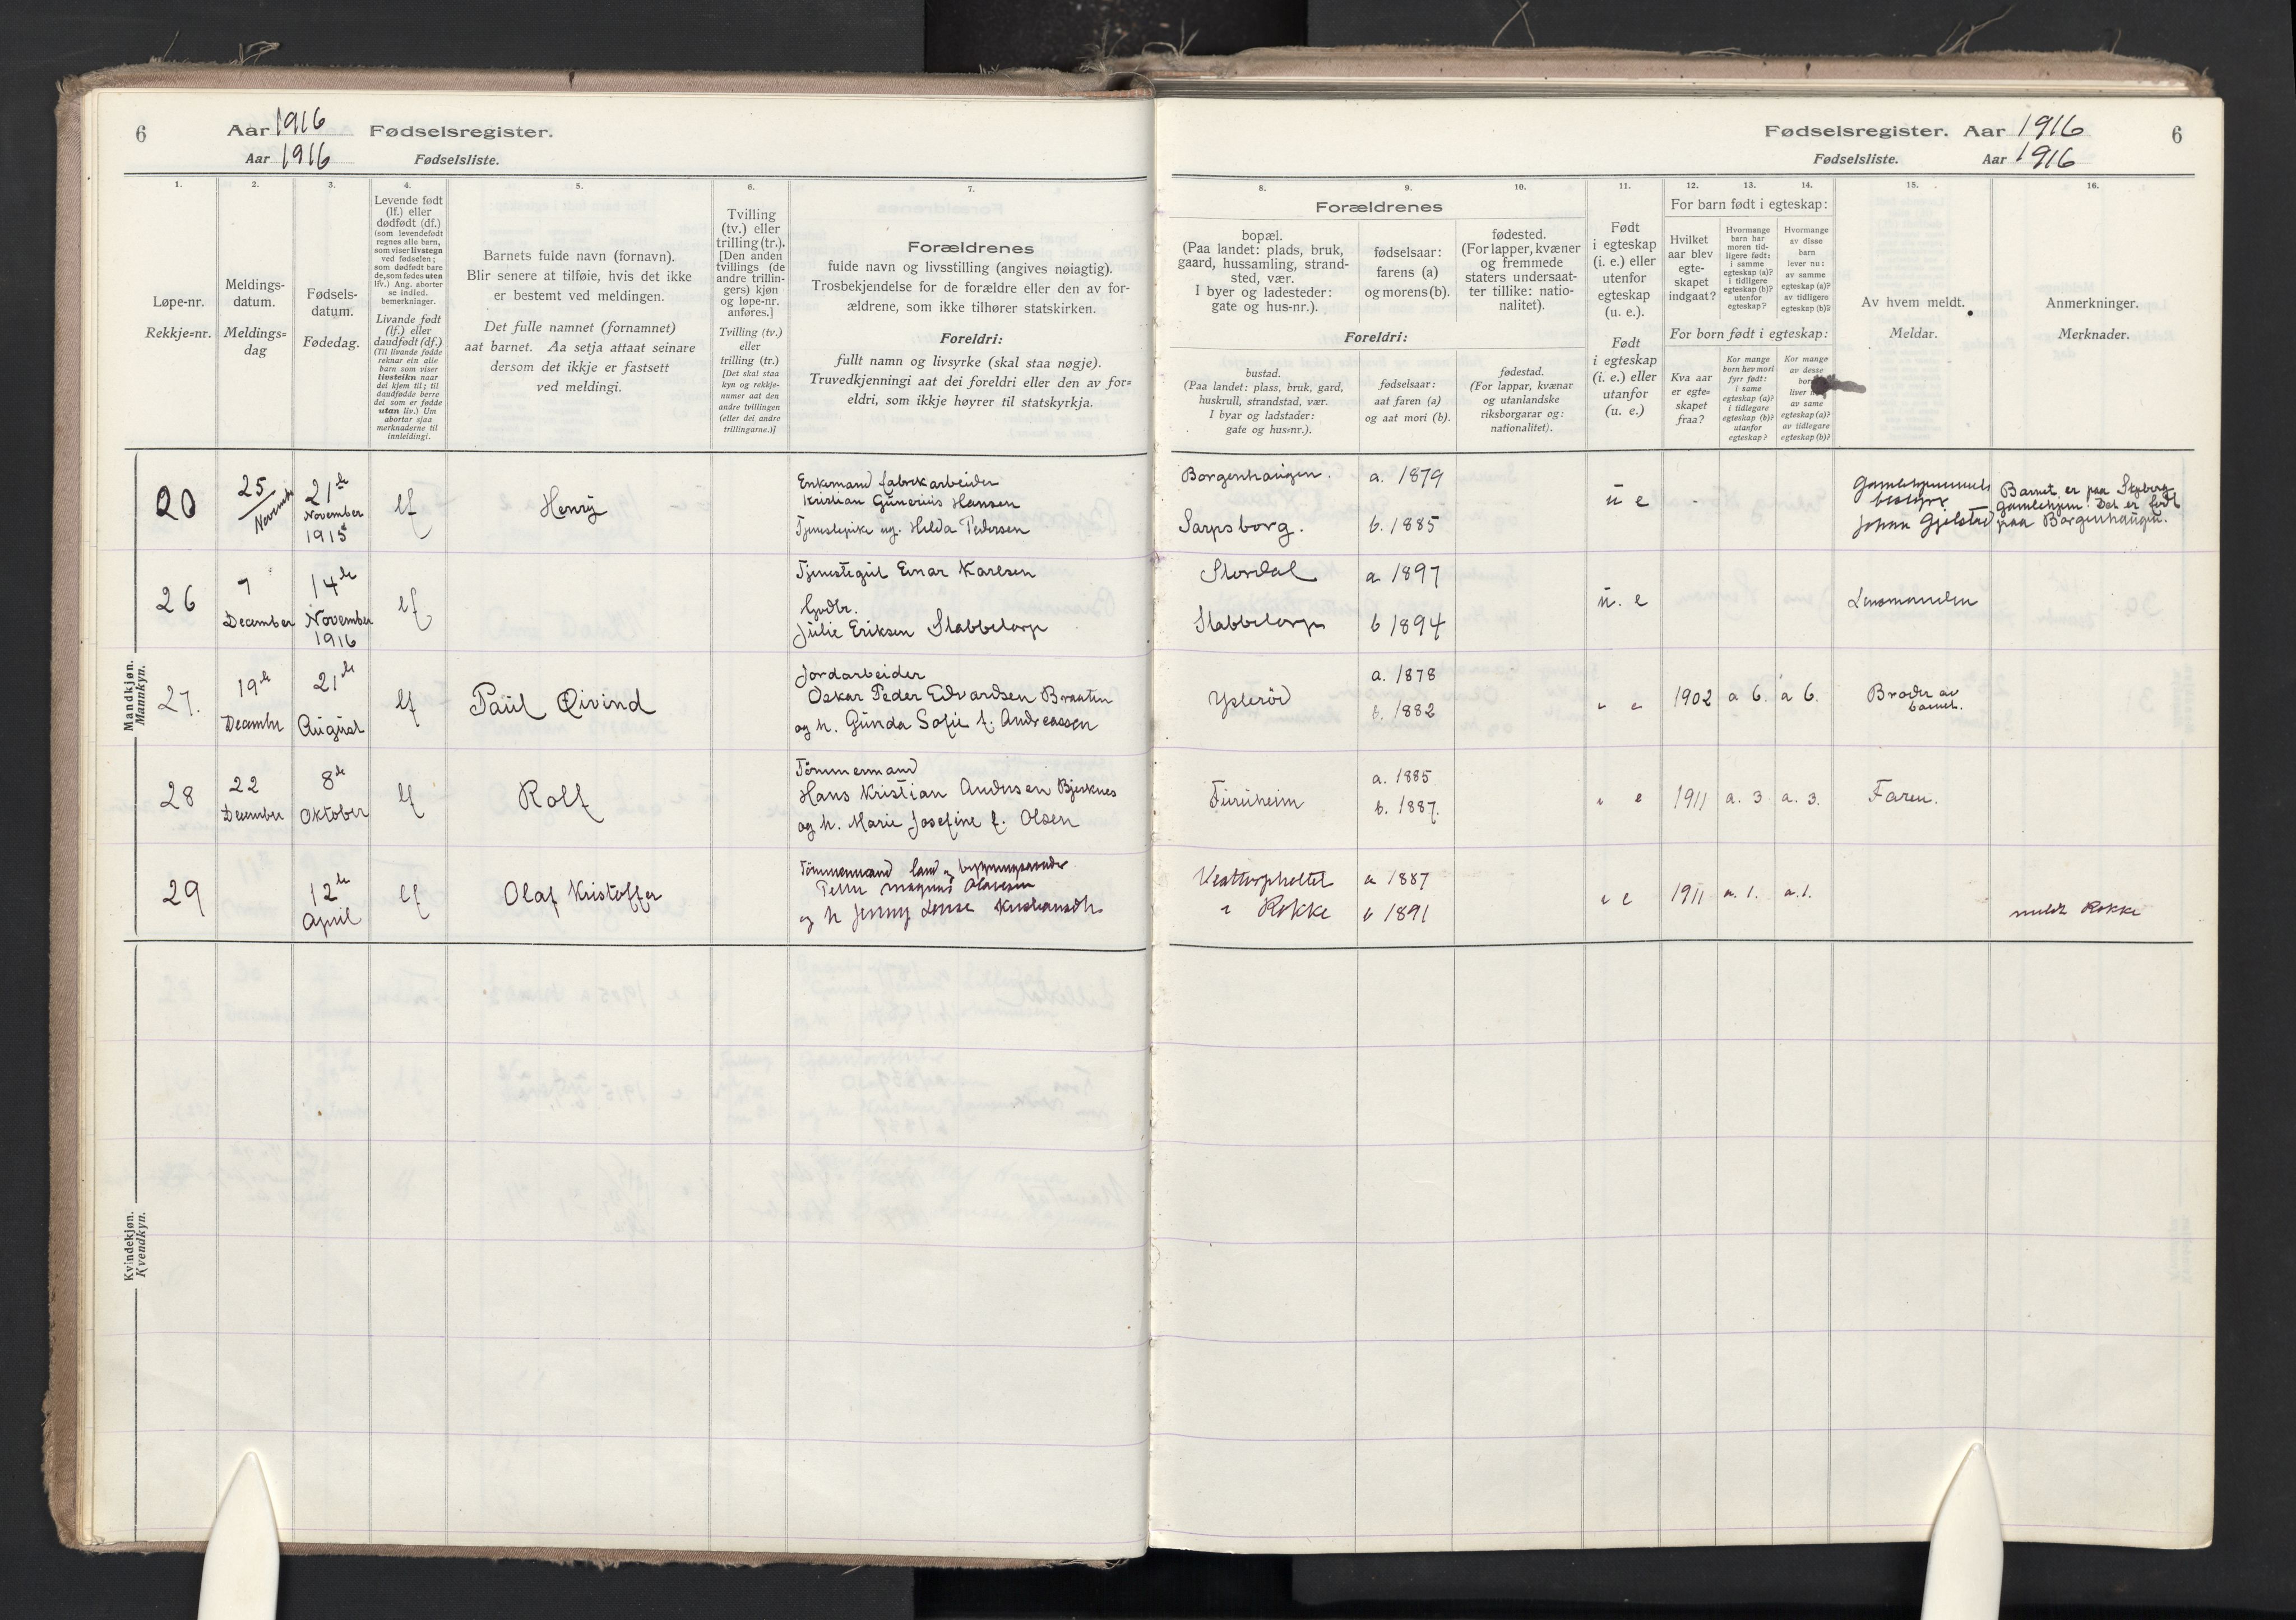 6
Aar 1916 Fødselsregister.
Aar 1916 Fødselsliste.
1.
2.
3.
4.
5.
6.
7.
Løpe-nr.
Rekkje=nr.
Meldings-
datum.
Meldings=
dag
Fødsels-
datum.
Fødedag.
Levende født
(lf.) eller
dødfødt (df.)
(som levendefødt
regnes alle barn,
som viser livstegn
ved fødselen;
som dødfødt bare
de, som fødes uten
liv.) Ang. aborter
se indled.
bemerkninger.
Livande født
(lf.) eller
daudfødt (df.)
(Til livande fødde
reknar ein alle
barn som viser
livsteikn naar
dei kjem til; til
daudfødde berre
dei som er fødde
utan liv.) Um
abortar sjaa
merknaderne til
innleidingi.
Barnets fulde navn (fornavn).
Blir senere at tilføie, hvis det ikke
er bestemt ved meldingen.
Det fulle namnet (fornamnet)
aat barnet. Aa setja attaat seinare
dersom det ikkje er fastsett
ved meldingi.
Tvilling
(tv.) eller
trilling (tr.).
[Den anden
tvillings (de
andre trillin-
gers) kjøn
og løpe-nr.
anføres.]
Tvilling (tv.)
eller
trilling (tr.)
[Det skal staa
kyn og rekkje-
numer aat den
andre tvillingen
(eller dei andre
trillingarne.)]
Forældrenes
fulde navn og livsstilling (angives nøiagtig).
Trosbekjendelse for de forældre eller den av for-
ældrene, som ikke tilhører statskirken.
Foreldri:
fullt namn og livsyrke (skal staa nøgje).
Truvedkjenningi aat dei foreldri eller den av for=
eldri, som ikkje høyrer til statskyrkja.
Mandkjøn.
Mannkyn.
20
25/November
21de November 1915
lf
Henry
Enkemand fabrikarbeider
Kristian Gunerius Hansen
Tjenestepike ug. Helda Pedersen
26
7 December
14de November 1916
lf
Tjenestegut Einar Karlsen
Gvdbr.
Julie Eriksen Stabbetorp
27.
19de December
21de August
lf
Paul Øivind
Jordarbeider
Oskar Peder Edvardsen Braaten
og h. Gunda Sofie f. Andreassen
28
22 December
8de Oktober
lf
Rolf
Tømmermand
Hans Kristian Andersen Bjerknes
og h. Marie Josefine f. Olsen
29
12de April
lf
Olaf Kristoffer
Tømmermand
Magnus
og h Jenny
Kvindekjøn.
Kvendkyn.
Fødselsregister. Aar 1916
6
Fødselsliste. Aar 1916
8.
9.
10.
11.
12.
13.
14.
15.
16.
Forældrenes
bopæl.
(Paa landet: plads, bruk,
gaard, hussamling, strand-
sted, vær.
I byer og ladesteder:
gate og hus-nr.).
fødselsaar:
farens (a)
og morens (b).
fødested.
(For lapper, kvæner
og fremmede
staters undersaat-
ter tillike: natio-
nalitet).
Foreldri:
bustad.
(Paa landet: plass, bruk, gard,
huskrull, strandstad, vær.
I byar og ladstader:
gate og hus=nr.).
fødselsaar:
aat faren (a)
og aat mori (b).
fødestad.
(For lappar, kvænar
og utanlandske
riksborgarar og:
nationalitet).
Født
i egteskap
(i. e.) eller
utenfor
egteskap
(u. e.).
Født
i egteskap
(i. e.) eller
utanfor
egteskap
(u. e.)
For barn født i egteskap:
Hvilket
aar blev
egte-
skapet
indgaat?
Hvormange
barn har
moren tid-
ligere født:
i samme
egteskap (a)?
i tidligere
egteskap (b)?
utenfor
egteskap?
Hvormange
av disse
barn
lever nu:
av samme
egteskap (a)?
av tidligere
egteskap (b)?
For born født i egteskap:
Kva aar
er egte=
skapet
fraa?
Kor mange
born hev mori
fyrr født:
i same
egteskap (a)?
i tidlegare
egteskap (b)?
utanfor
egteskap?
Kor mange
av desse
born
liver
av same
egteskap (a)?
av tidlegare
egteskap (b)?
Av hvem meldt.
Meldar.
Anmerkninger.
Merknader.
Borgenhaugen.
Sarpsborg.
a. 1879
b. 1885
u e
-
Gamlehjemmets
bestyr
Johan Gjelstad
Barnet er paa Skjeberg
Gamlehjem. Det er født
paa Borgenhaugen.
Stordal
Stabbetorp
a. 1897
b 1894
u. e
Lensmanden
Ysterød
a. 1878
b. 1882
i e
1902
a 6.
a 6.
Broder av
barnet.
Furuheim
a. 1885
b. 1887.
i e
1911
a. 3
a. 3.
Faren.
i Rokke
a 1887
b 1891
i e
1911
a. 1.
a. 1.
meldt Rokke